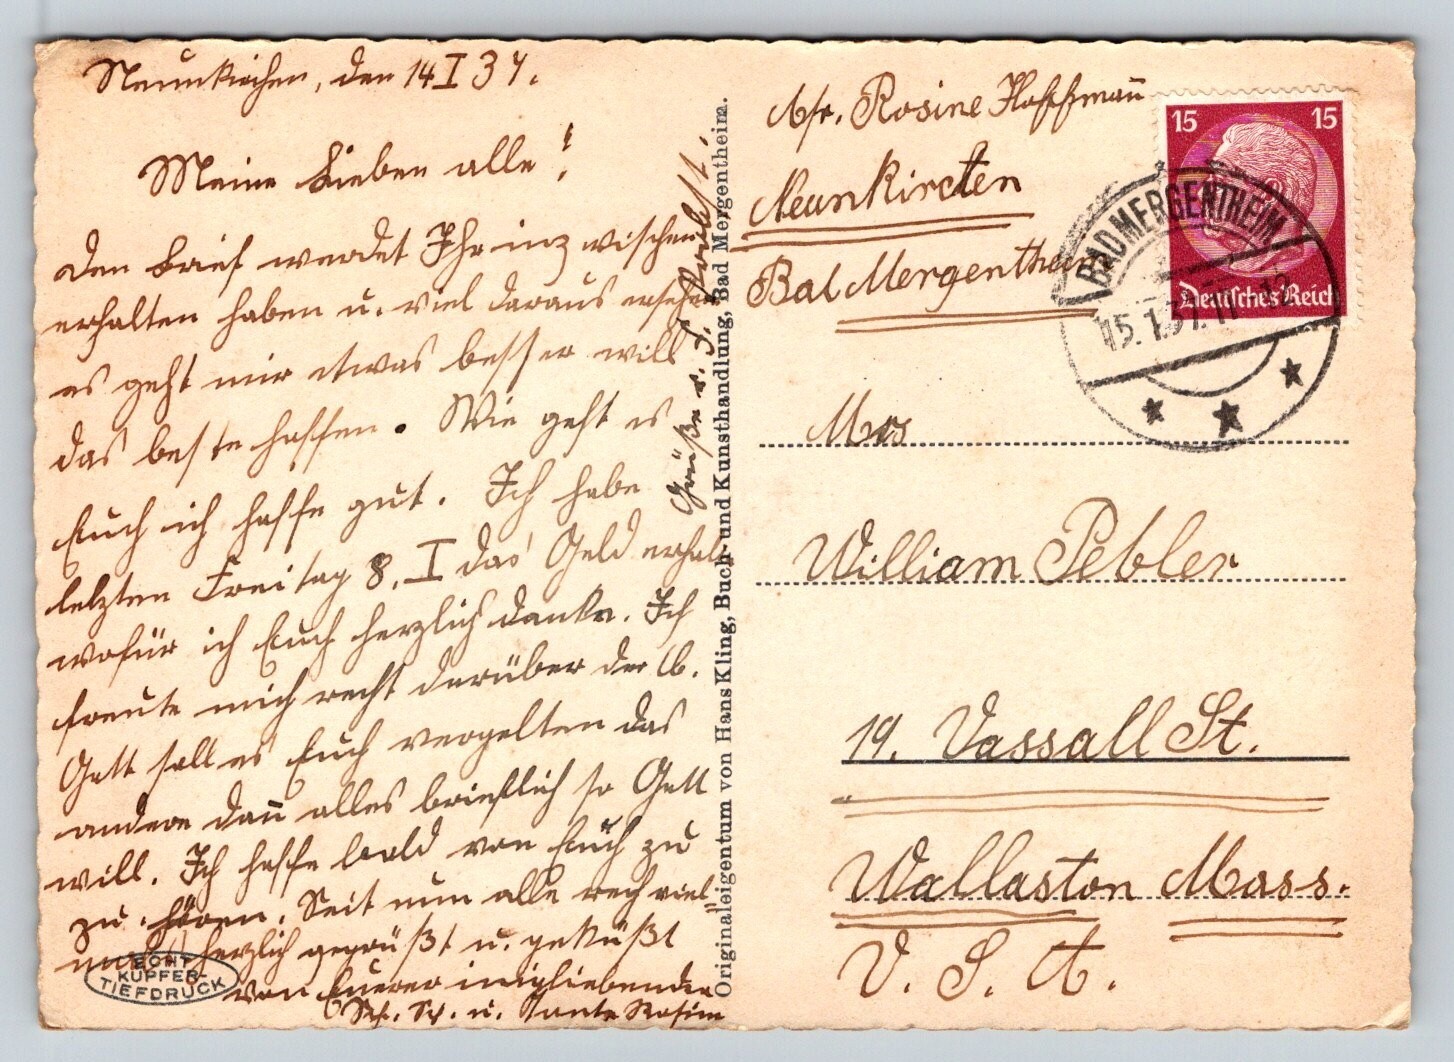 Neunkirchen, den 14 I 37.
Meine Lieben alle!
Den Brief werdet Ihr inzwischen
erhalten haben u. viel daraus ersehen
es geht mir etwas besser will
das beste hoffen. Wie geht es
Euch ich hoffe gut. Ich habe
letzten Freitag 8. I das Geld erhalt
wofür ich Euch herzlich danke. Ich
freute mich recht darüber der lb.
Gott soll es Euch vergelten das
andere dann alles brieflich so Gott
will. Ich hoffe bald von Euch zu
zu hören. Seit nun alle rech viel
herzlich gegrüßt u. geküßt
von Eurer innigliebenden
Sch. u. Tante Rosine
Grüße v.
ECHT
KUPFER-
TIEFDRUCK
Originaleigentum von Hans Kling, Buch- und Kunsthandlung, Bad Mergentheim.
Abs. Rosine Hoffmann
Neunkirchen
Bad Mergentheim
15 15
Deutsches Reich
BAD MERGENTHEIM
15.1.37.
Mrs
William Pebler
19. Vassall St.
Wallaston Mass.
U. S. A.